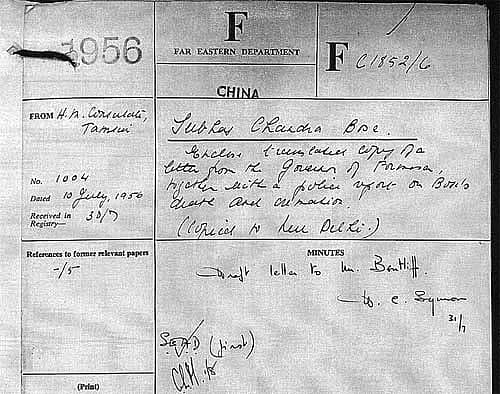 1956
F
FAR EASTERN DEPARTMENT
CHINA
F C1852/6
FROM H.M. Consulate,
Tamsui
No. 1004
Dated 10 July, 1956
Received in
Registry— 30/7
References to former relevant papers
-/5
(Print)
Subhas Chandra Bose.
Enclose translated copy of a
letter from the Governor of Formosa,
together with a police report on Bose's
death and cremation.
(Copied to New Delhi.)
MINUTES
Draft letter to Mr.
31/7
S.E.A.D (first)